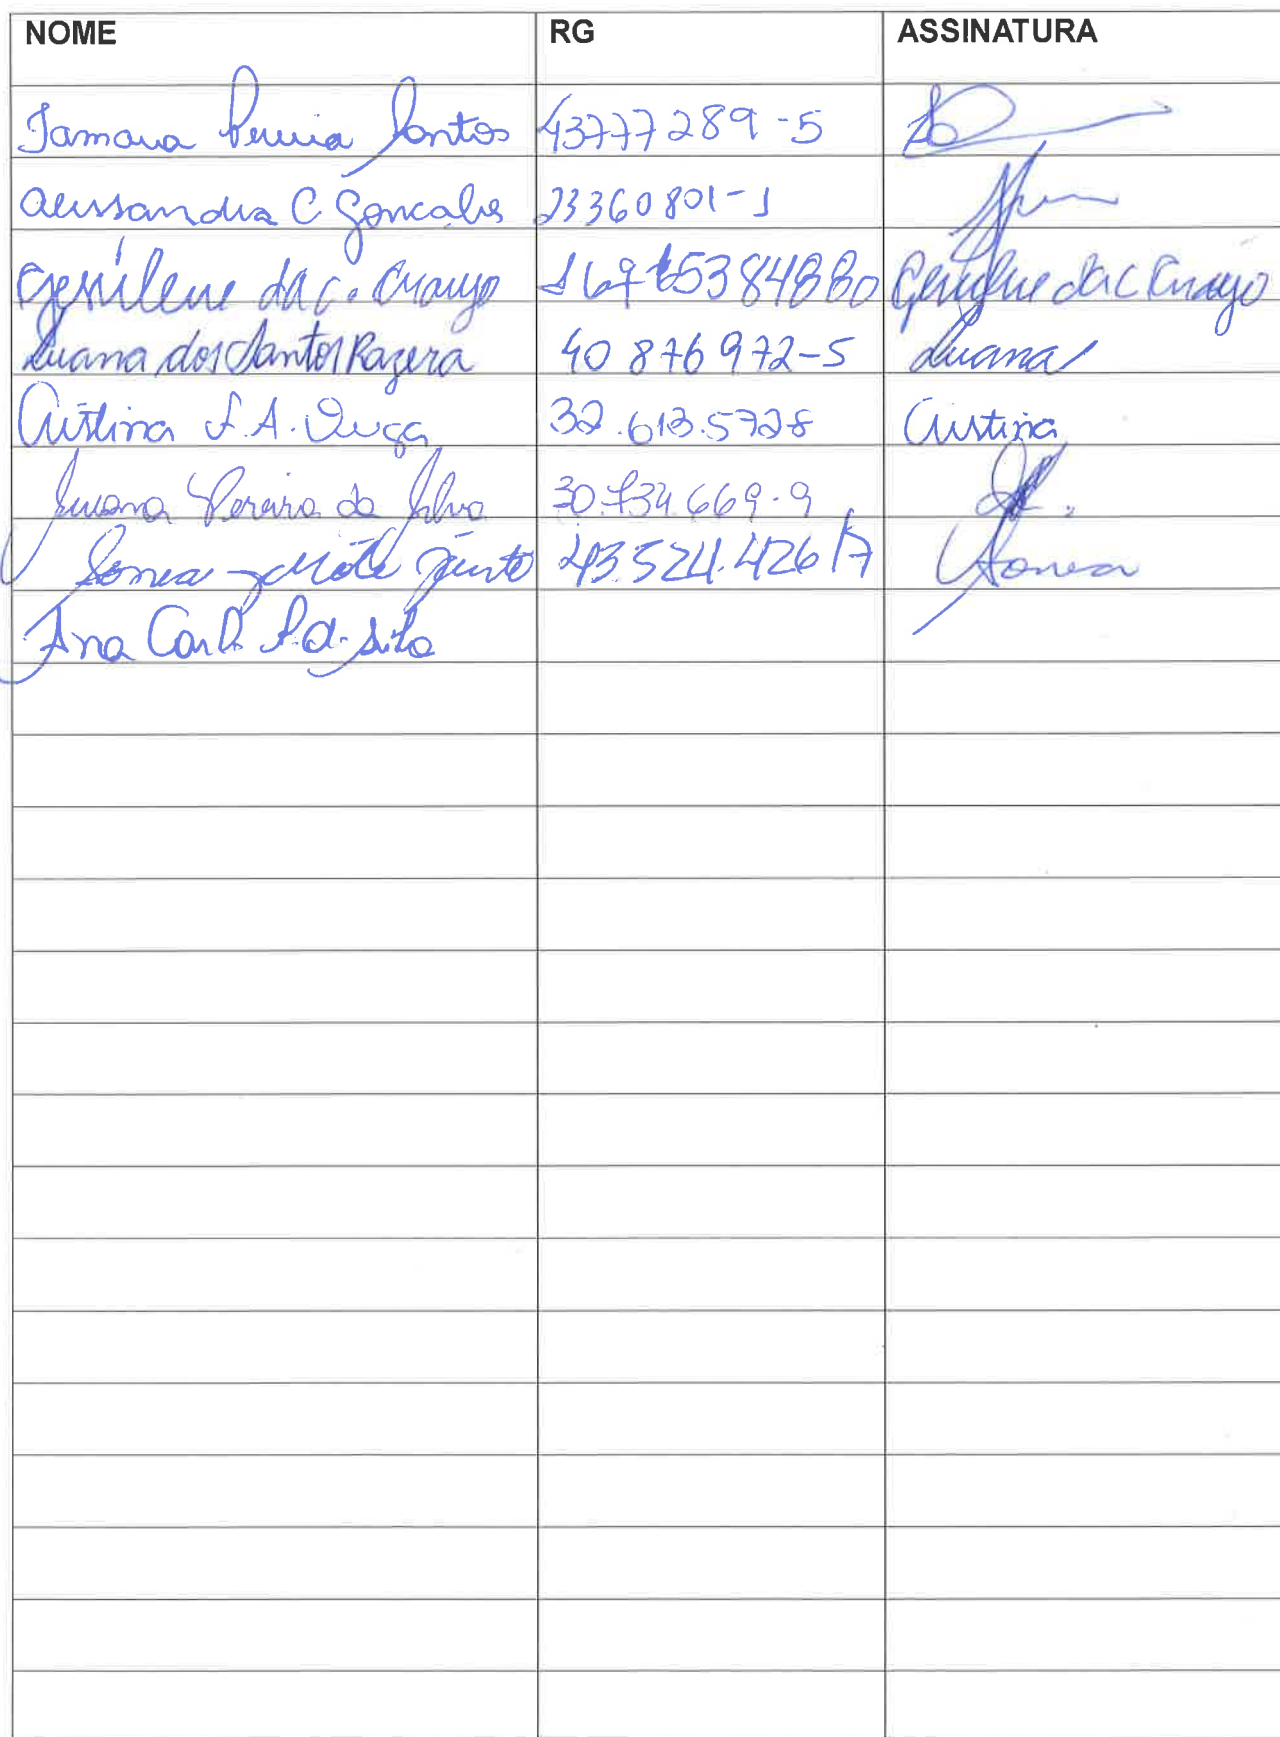 NOME RG ASSINATURA
Tamara Pereira Santos 43777289-5
Alessandra C Goncalves 23360801-1
Genilene da c. Araujo Genilene da C Araujo
Luana dos Santos Razera 40 876 972-5 Luana
Cristina S.A. 32.613.5728 Cristina
Pereira da Silva 30.734.669-9
Sonia Pinto 43.524.426 Sonia
Ana Carla